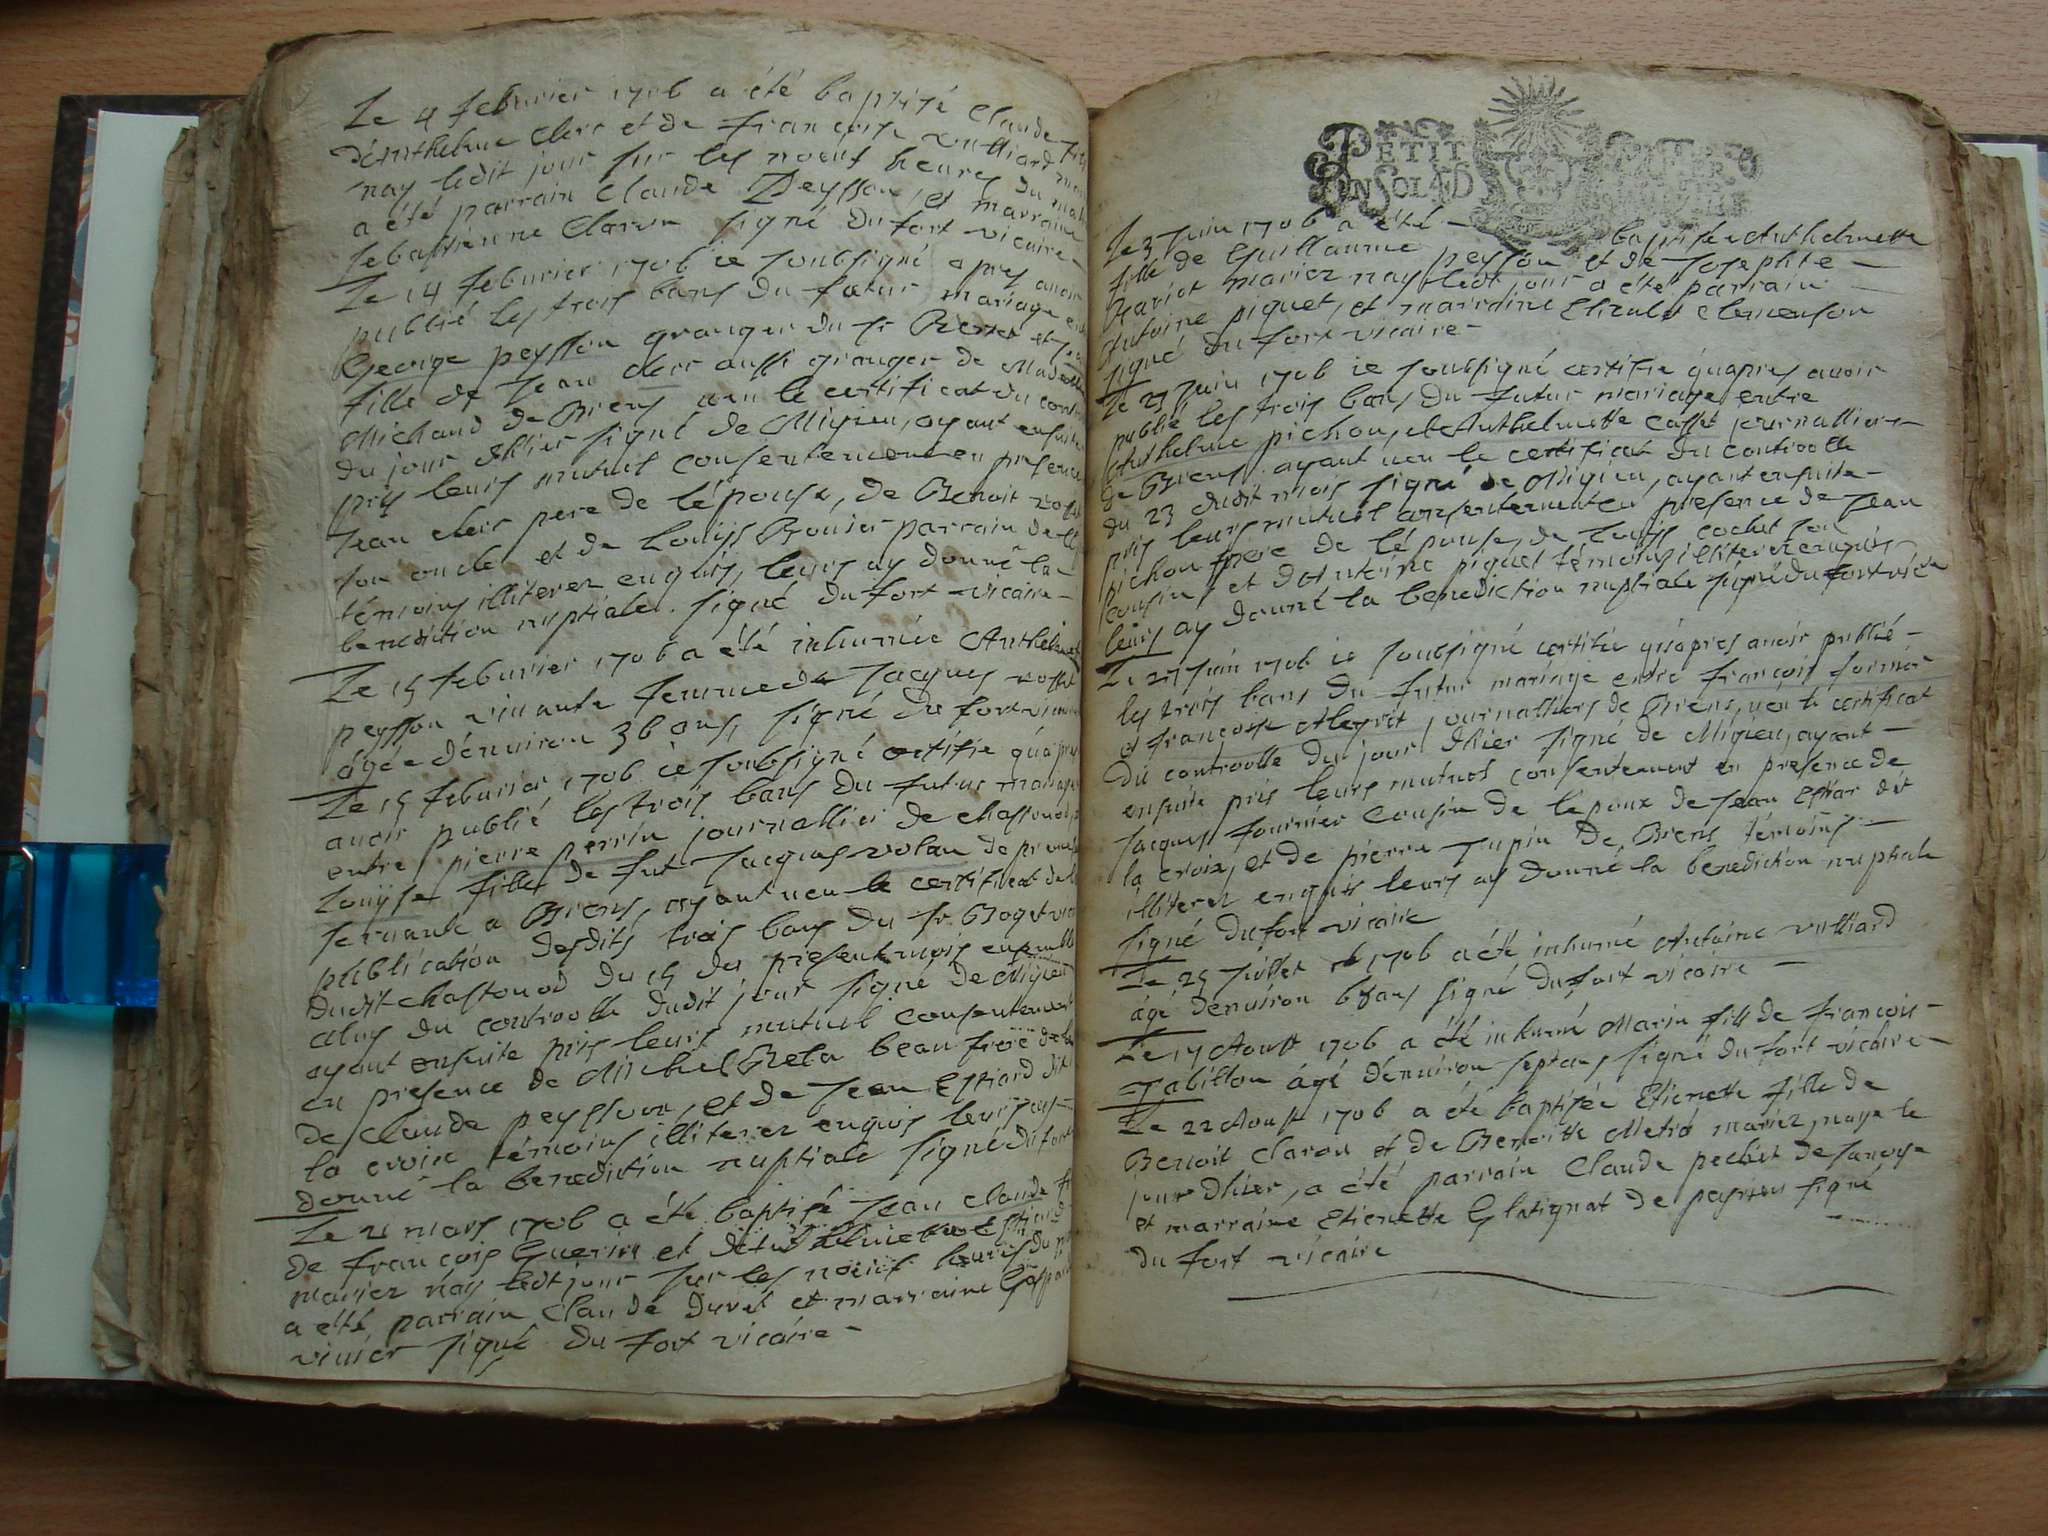 Le 4 feburier 1706 a été baptisé Claude
d'Anthelme Clerc et de françoise vulliard
nay ledit jour sur les noeuf heures du
a été parrain Claude Peysson, et marraine
sebastienne Claron signé du fort vicaire -
Le 14 feburier 1706 ie soubsigné apres avoir
publié les trois bans du futur mariage
George peysson granger du Sr et
fille de Jean clerc aussi granger de
Michaud de Brens ueu le certificat du
du jour dhier signé de Migieu, ayant ensuite
pris leurs mutuel consentement en presence
Jean clerc pere de l'épouse, de Benoit
son oncle et de Louys Bouier parrain
témoins illiterez enquis, leurs ay donné la -
benediction nuptiale. signé du fort vicaire -
Le 15 feburier 1706 a été inhumée
peysson viuante femme de Jacques
ágée d'enuiron 36 ans, signé du fort
Le 15 feburier 1706 ie soubsigné certifie
auoir publié les trois bans du futur mariage
entre pierre perrin journallier de
Louyse fille de fut Jacques volan de
seruante a Brens, ayant ueu le certificat
publication desdits trois bans du Sr Boget
dudit du 15 du present mois
du controolle dudit jour signé de Migieu
ayant ensuite pris leurs mutuel consentement
en presence de Michel Bela beau frere
de Claude peysson, et de Jean Estiard
la croix témoins illiterez enquis leurs
donné la benediction nuptiale signé du fort
Le 21 mars 1706 a été baptisé Jean claude
de francois Guerin et
mariez nay ledt jour sur les noeuf heures du
a été parrain Claude Duret et marraine
viuier signé du fort vicaire -
PETIT PAPIER
UN SOL 4 D
Le 3 Juin 1706 a été - baptisée Anthelmette
fille de Guillaume peysson et de Josephte -
mariez nay ledt jour a été parrain -
Antoine piquet, et marraine clemenson
signé du fort vicaire -
Le Juin 1706 ie soubsigné certifie qu'apres auoir
publié les trois bans du futur mariage entre
Anthelme pichon, et Anthelmette Casset journalliers
de Brens ayant ueu le certificat du controolle
du 23 dudit mois signé de Migieu, ayant ensuite -
pris leurs mutuel consentement en presence de Jean
pichon frere de l'épouse, de Louys cochet son
cousin, et d'Antoine piquet témoins illiterez enquis
leurs ay donné la benediction nuptiale signé du fort
Le Juin 1706 ie soubsigné certifie qu'apres auoir publié -
les trois bans du futur mariage entre françois
et françoise journalliers de Brens, ueu le certificat
du controolle du jour dhier signé de Migieu, ayant -
ensuite pris leurs mutuel consentement en presence de
Jacques fournier Cousin de l'époux de Jean dit
la croix, et de pierre Jupin de Brens témoins -
illiterez enquis leurs ay donné la benediction nuptiale
signé du fort vicaire
Le 25 Juillet 1706 a été inhumé Antoine vulliard
ágé denuiron ans signé du fort vicaire -
Le Aoust 1706 a été inhumé Marin fils de francois -
ágé d'enuiron sept ans signé du fort vicaire -
Le 22 Aoust 1706 a été baptisée Etienette fille de
Benoit Claron et de Benoitte mariez, naye le
jour dhier, a été parrain Claude pechet de
et marraine Etienette Glatignat de peyrieu signé
du fort vicaire